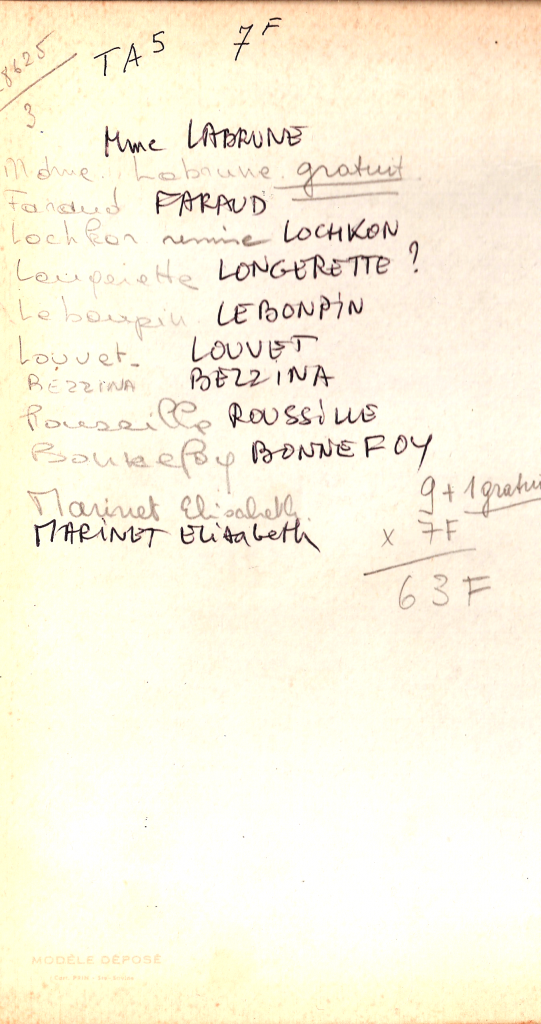 8625
TA5 7F
3.
Mme LABRUNE
Mdme. Labrune gratuit
Faraud FARAUD
Lochkon LOCHKON
LONGERETTE ?
Lebonpin LEBONPIN
Louvet- LOUVET
BEZZINA BEZZINA
ROUSSILLE
Bonnefoy BONNEFOY
Marinet Elisabeth
MARINET Elisabeth
9 + 1 gratuit
x 7F
63F
MODÈLE DÉPOSÉ